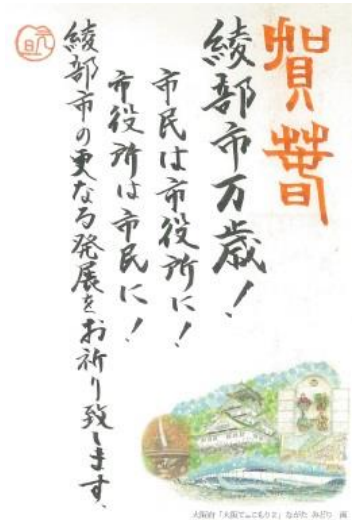 賀春
綾部市万歳！
市民は市役所に！
市役所は市民に！
綾部市の更なる発展をお祈り致します、
元旦
大阪府「大阪てんこもり2」ながた みどり 画